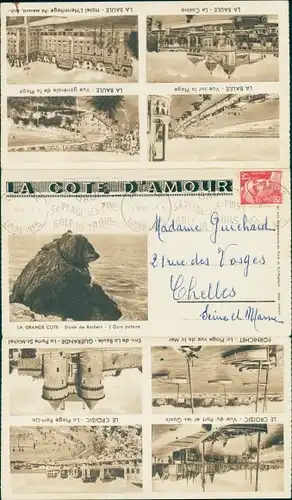 LA BAULE - Hôtel L'Hermitage
LA BAULE - Le Casino
LA BAULE - Vue générale de la Plage
LA BAULE - Vue sur la Plage
LA COTE D'AMOUR
SA PLAGE
GOLF
Madame Guichard
21 rue des Vosges
Chelles
Seine et Marne
LA GRANDE COTE - Divise de Rochers - L'Ours polaire
Env. de La Baule - GUÉRANDE - La Porte St-Michel
PORNICHET - La Plage vue de la Mer
LE CROISIC - La Plage Port-Lin
LE CROISIC - Vue du Port et les Quais